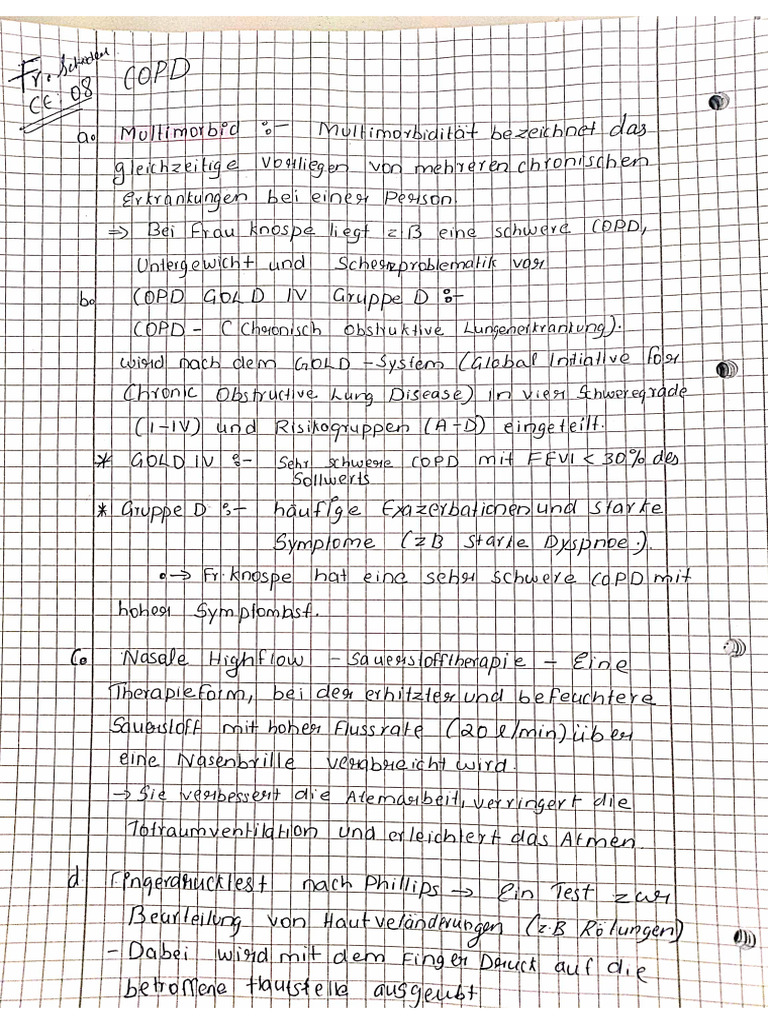 Fr. Schröder
CE: 08
COPD
a. Multimorbid :- Multimorbidität bezeichnet das
gleichzeitige Vorliegen von mehreren chronischen
Erkrankungen bei einer Person.
⇒ Bei Frau Knospe liegt z B eine schwere COPD,
Untergewicht und Schmerzproblematik vor
b. COPD GOLD IV Gruppe D :-
COPD - C Chronisch Obstruktive Lungenerkrankung).
wird nach dem GOLD-System (Global Intiative for
Chronic Obstructive Lung Disease) in vier Schweregrade
(I-IV) und Risikogruppen (A-D) eingeteilt.
* GOLD IV :- Sehr schwere COPD mit FEV1 < 30% des
Sollwerts
* Gruppe D :- häufige Exazerbationen und starke
Symptome (z B starke Dyspnoe.).
→ Fr. Knospe hat eine sehr schwere COPD mit
hoher Symptomlast.
C. Nasale Highflow - Sauerstofftherapie - Eine
Therapieform, bei der erhitzter und befeuchtere
Sauerstoff mit hoher Flussrate (20 l/min) über
eine Nasenbrille verabreicht wird.
→ Sie verbessert die Atemarbeit, verringert die
Totraumventilation und erleichtert das Atmen.
d. Fingerdrucktest nach Phillips → Ein Test zur
Beurteilung von Hautveränderungen (z.B Rötungen)
- Dabei wird mit dem Finger Druck auf die
betroffene Hautstelle ausgeubt